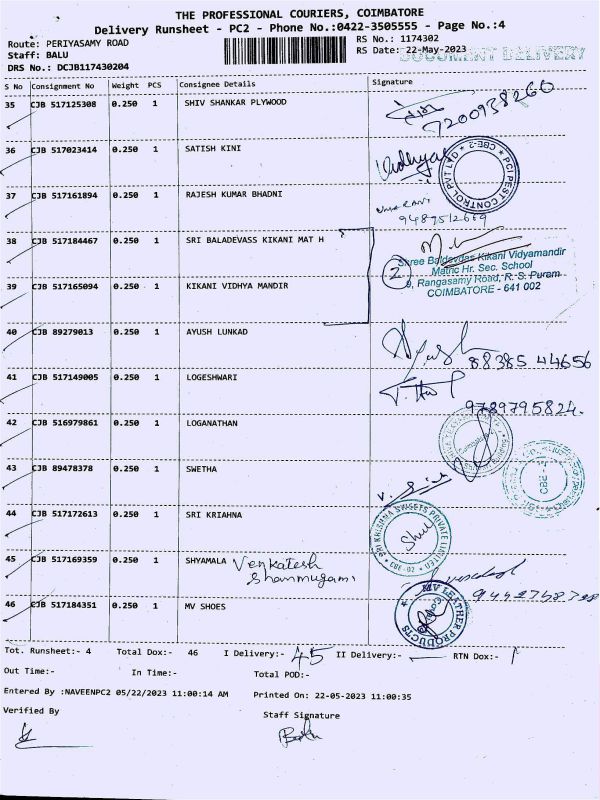 THE PROFESSIONAL COURIERS, COIMBATORE
Delivery Runsheet - PC2 - Phone No.:0422-3505555 - Page No.:4
Route: PERIYASAMY ROAD RS No.: 1174302
Staff: BALU RS Date: 22-May-2023 DOCUMENT DELIVERY
DRS No.: DCJB117430204
S No Consignment No Weight PCS Consignee Details Signature
35 CJB 517125308 0.250 1 SHIV SHANKAR PLYWOOD
7200938260
36 CJB 517023414 0.250 1 SATISH KINI
Vidhya
PCI PEST CONTROL PVT LTD * CBE-2 *
37 CJB 517161894 0.250 1 RAJESH KUMAR BHADNI
9489512669
38 CJB 517184467 0.250 1 SRI BALADEVASS KIKANI MAT H
Shree Baldevdas Kikani Vidyamandir
Matric Hr. Sec. School
9, Rangasamy Road, R. S. Puram
COIMBATORE - 641 002
2
39 CJB 517165094 0.250 1 KIKANI VIDHYA MANDIR
40 CJB 89279013 0.250 1 AYUSH LUNKAD
88385 44656
41 CJB 517149005 0.250 1 LOGESHWARI
9789795824.
42 CJB 516979861 0.250 1 LOGANATHAN
43 CJB 89478378 0.250 1 SWETHA
44 CJB 517172613 0.250 1 SRI KRIAHNA
SRI KRISHNA SWEETS PRIVATE LIMITED
* CBE-02 *
45 CJB 517169359 0.250 1 SHYAMALA Venkatesh
Shanmugami
46 CJB 517184351 0.250 1 MV SHOES
MV LEATHER PRODUCTS
Tot. Runsheet:- 4 Total Dox:- 46 I Delivery:- 45 II Delivery:- — RTN Dox:- 1
Out Time:- In Time:- Total POD:-
Entered By :NAVEENPC2 05/22/2023 11:00:14 AM Printed On: 22-05-2023 11:00:35
Verified By Staff Signature